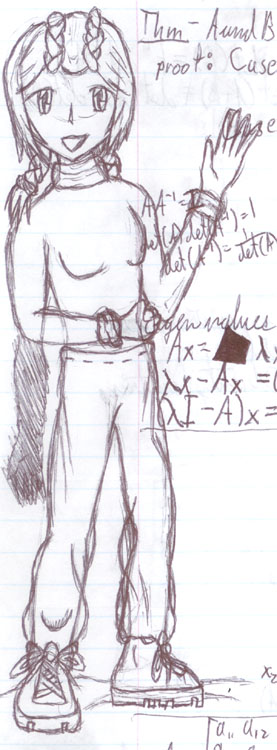 Thm - A and B
proof: Case
Case
AA⁻¹=I
det(A)det(A⁻¹)=1
det(A⁻¹)= det(A)
Eigenvalues
Ax= λx
λx-Ax =0
(λI-A)x=
x₂
a₁₁ a₁₂